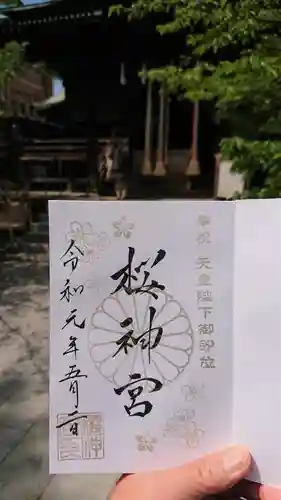 奉祝 天皇陛下御即位
桜神宮
令和元年五月二日